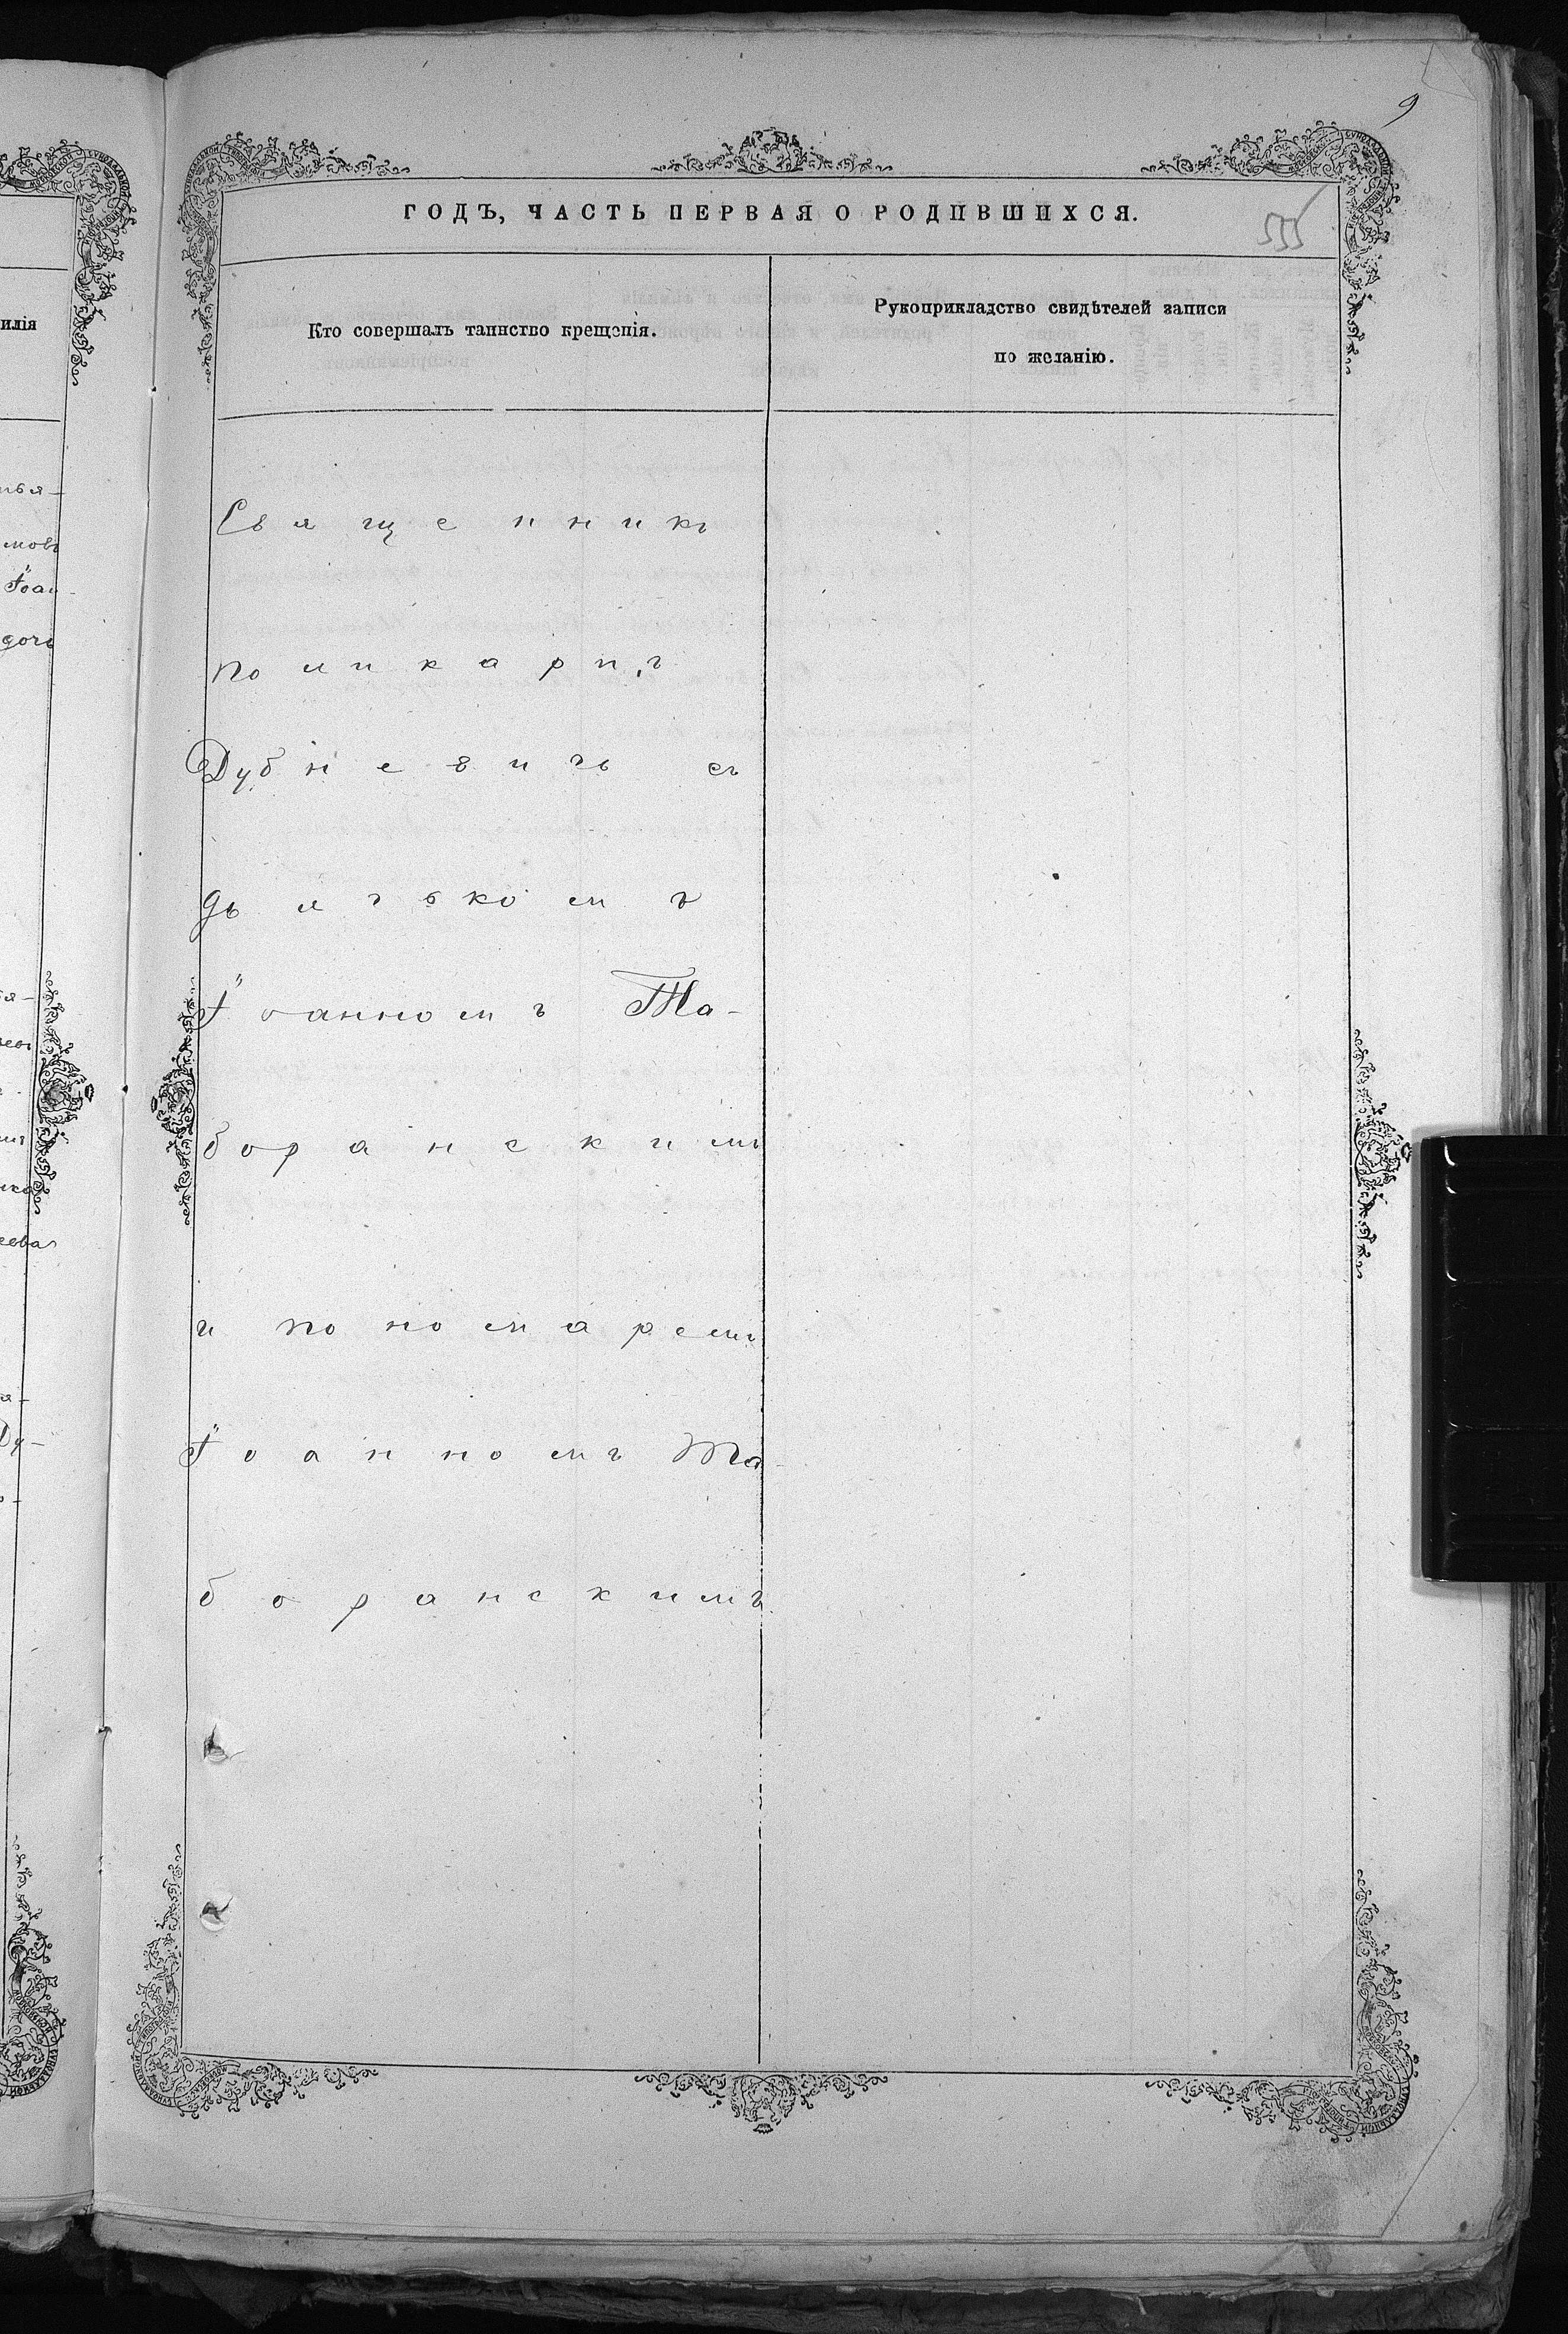 9
ГОДЪ, ЧАСТЬ ПЕРВАЯ О РОДИВШИХСЯ.
555
Кто совершалъ таинство крещенія.
Рукоприкладство свидѣтелей записи
по желанію.
Священникъ
Поликарпъ
Дубневичъ съ
дьячькомъ
Іоанномъ Та-
боранскимъ
и пономаремъ
Іоанномъ Та-
боранскимъ
илія
мовъ
Іоан-
дочь